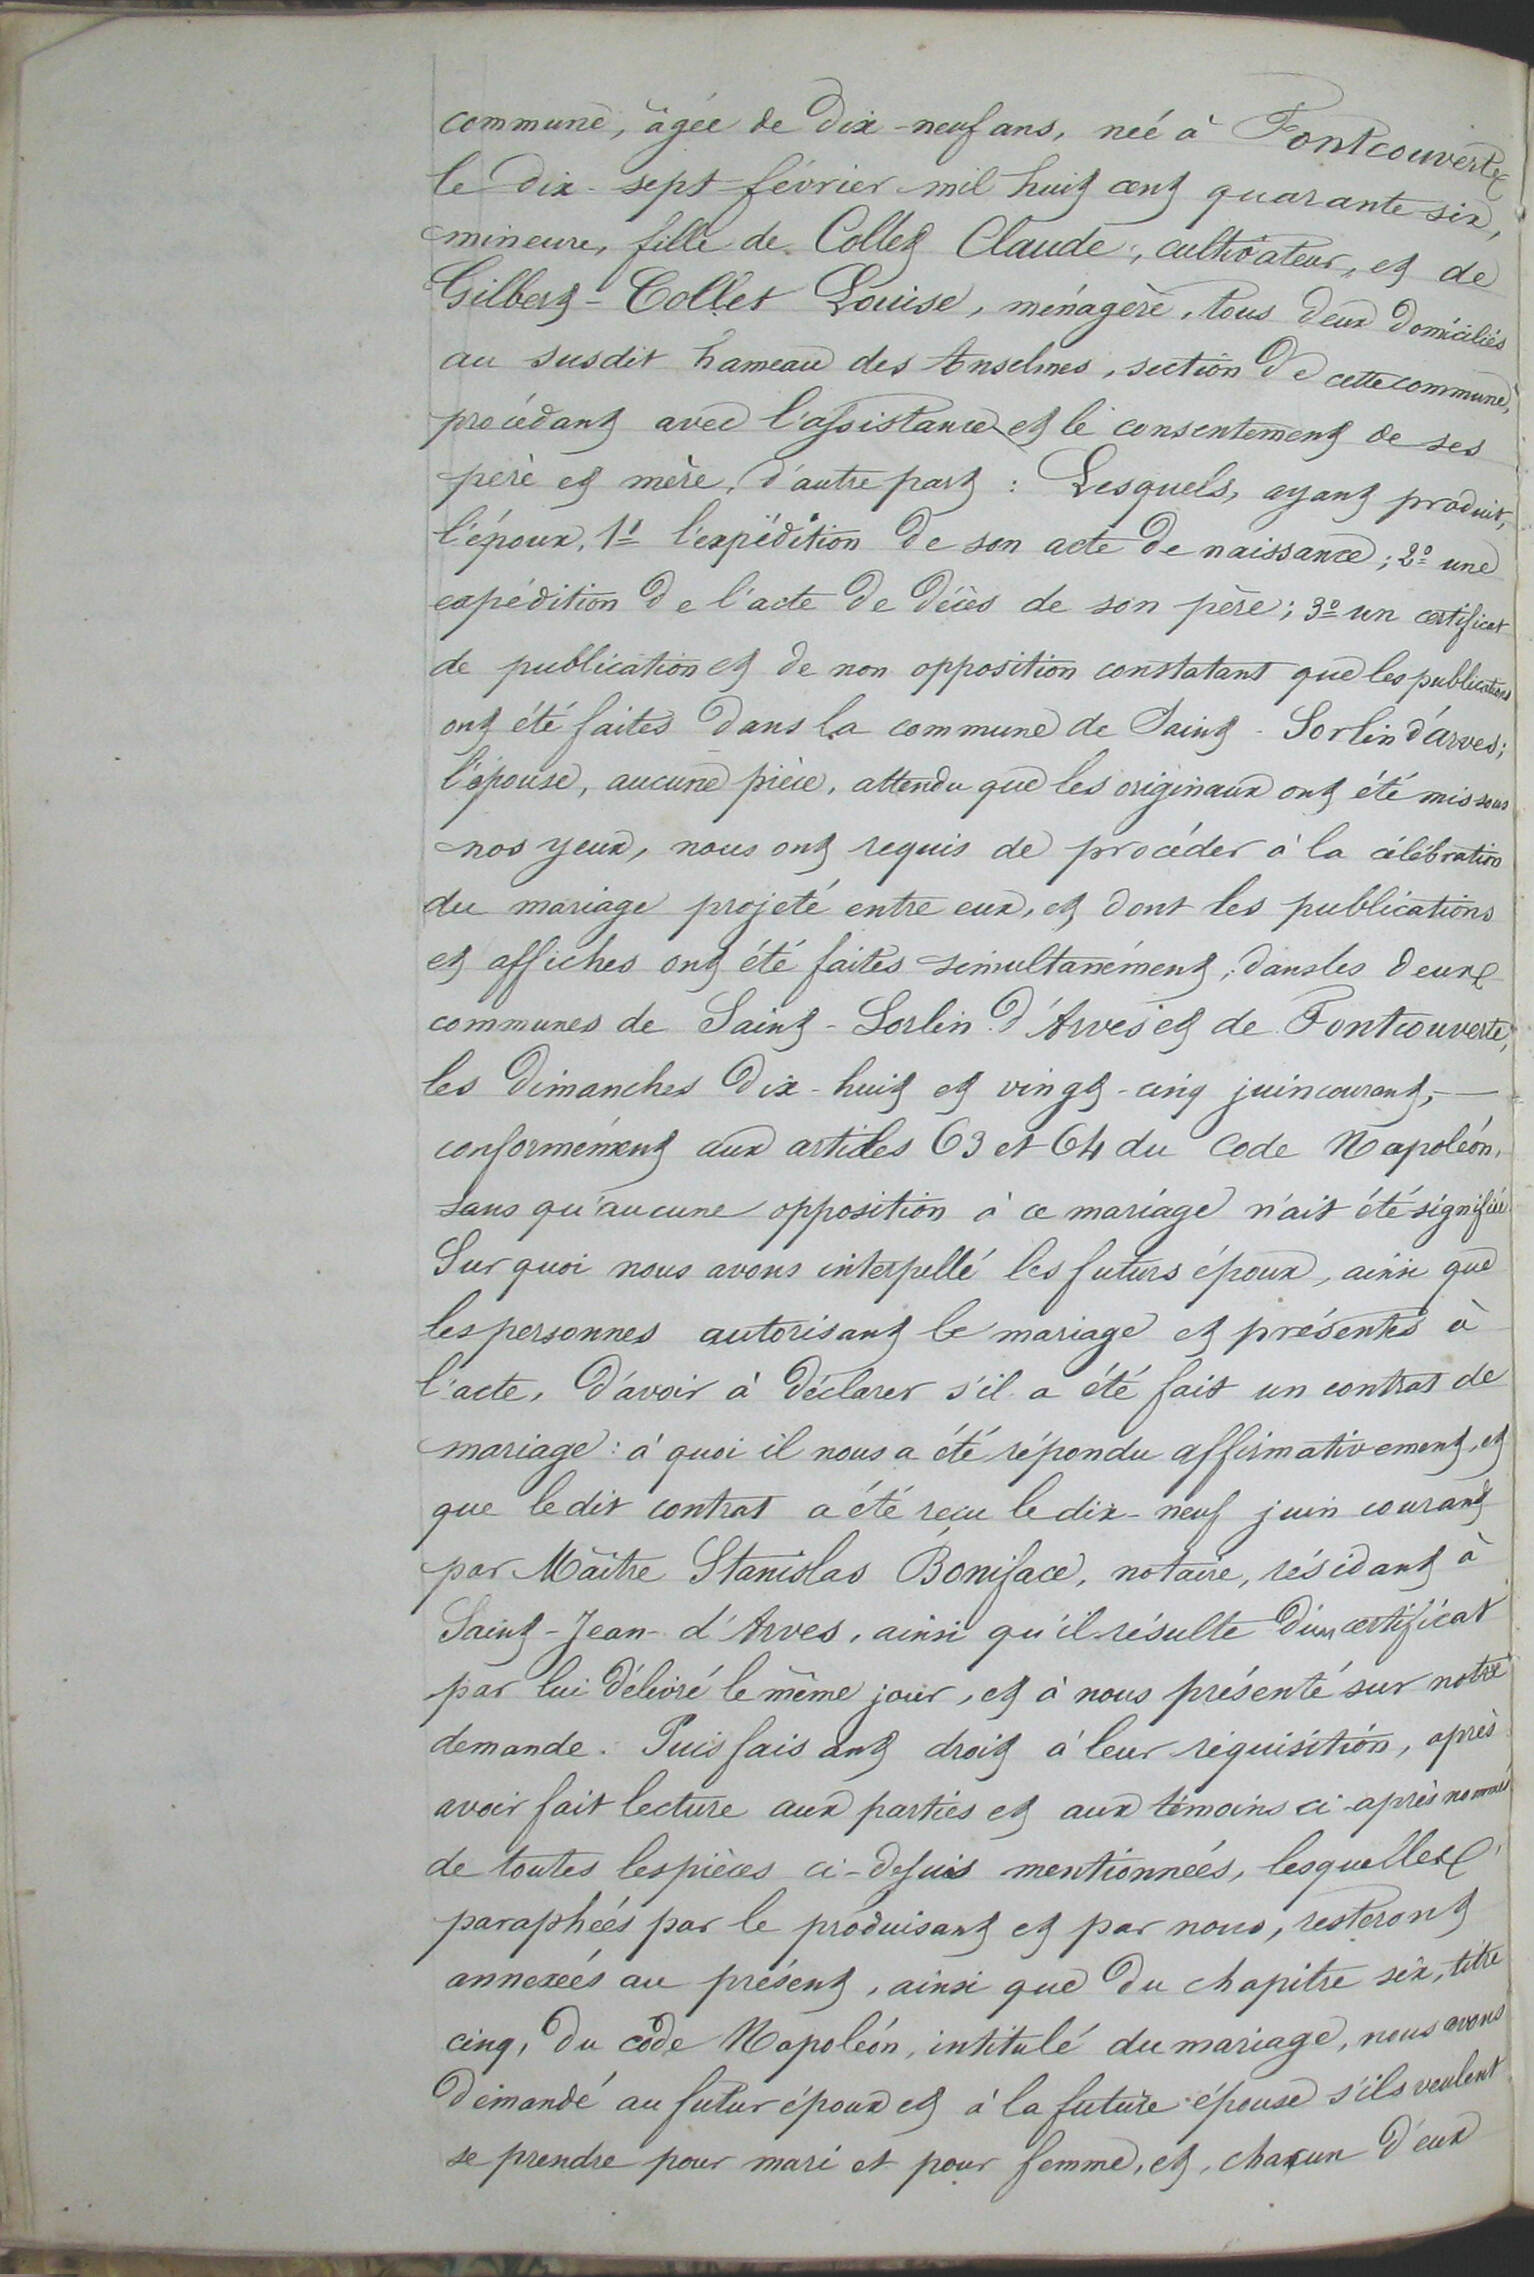 commune, âgée de dix-neuf ans, neé à Fontcouverte
le dix-sept février mil huit cent quarante six,
mineure, fille de Collet Claude, cultivateur, et de
Gilbert-Collet Louise, ménagère, tous deux domiciliés
au susdit hameau des Anselmes, section de cette commune,
procédant avec l'assistance et le consentement de ses
père et mère, d'autre part : Lesquels, ayant produit,
l'époux, 1º l'expédition de son acte de naissance ; 2º une
expédition de l'acte de décès de son père ; 3º un certificat
de publication et de non opposition constatant que les publications
ont été faites dans la commune de Saint-Sorlin d'arves ;
l'épouse, aucune pièce, attendu que les originaux ont été mis sous
nos yeux, nous ont requis de procéder à la célébration
du mariage projeté entre eux, et dont les publications
et affiches ont été faites simultanément, dans les deux
communes de Saint-Sorlin d'Arves et de Fontcouverte,
les dimanches dix-huit et vingt-cinq juin courant, —
conformément aux articles 63 et 64 du Code Napoléon,
sans qu'aucune opposition à ce mariage n'ait été signifiée
Sur quoi nous avons interpellé les futurs époux, ainsi que
les personnes autorisant le mariage et présentes à
l'acte, d'avoir à déclarer s'il a été fait un contrat de
mariage : à quoi il nous a été répondu affirmativement, et
que ledit contrat a été reçu le dix-neuf juin courant
par Maître Stanislas Boniface, notaire, résidant à
Saint-Jean-d'Arves, ainsi qu'il résulte d'un certificat
par lui délivré le même jour, et à nous présenté sur notre
demande. Puis faisant droit à leur réquisition, après
avoir fait lecture aux parties et aux témoins ci-après nommés
de toutes les pièces ci-dessus mentionnées, lesquelles
paraphées par le produisant et par nous, resteront
annexées au présent, ainsi que du chapitre six, titre
cinq, du code Napoléon, intitulé du mariage, nous avons
demandé au futur époux et à la future épouse s'ils veulent
se prendre pour mari et pour femme, et, chacun d'eux